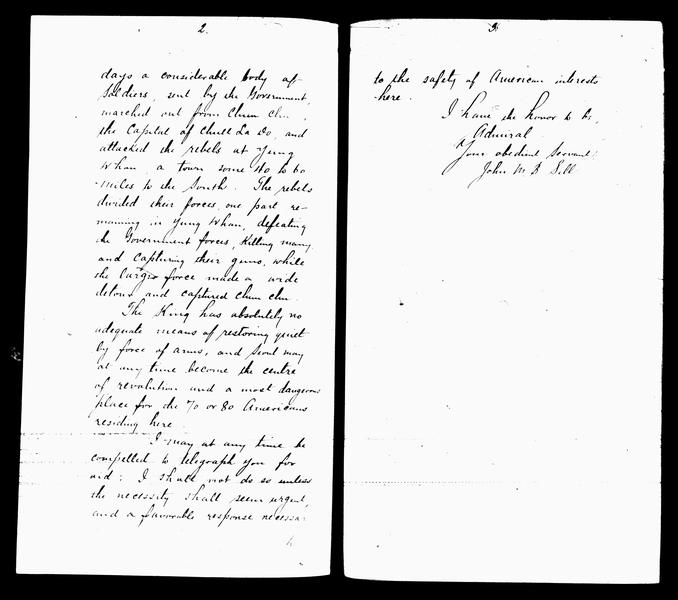 2.
days a considerable body of
soldiers, sent by the Government,
marched out from Chun Chu,
the Capital of Chull La Do, and
attacked the rebels at Yung
Whan, a town some 40 to 60
miles to the South. The rebels
divided their forces, one part re-
maining in Yung Whan, defeating
the Government forces, killing many
and capturing their guns, while
the larger force made a wide
detour and captured Chun Chu.
The King has absolutely no
adequate means of restoring quiet
by force of arms, and Seoul may
at any time become the centre
of revolution and a most dangerous
place for the 70 or 80 Americans
residing here.
I may at any time be
compelled to telegraph you for
aid: I shall not do so unless
the necessity shall seem urgent,
and a favorable response necessar
3.
to the safety of American interests
here.
I have the honor to be,
Admiral
Your obedient servant,
John M. B. Sill